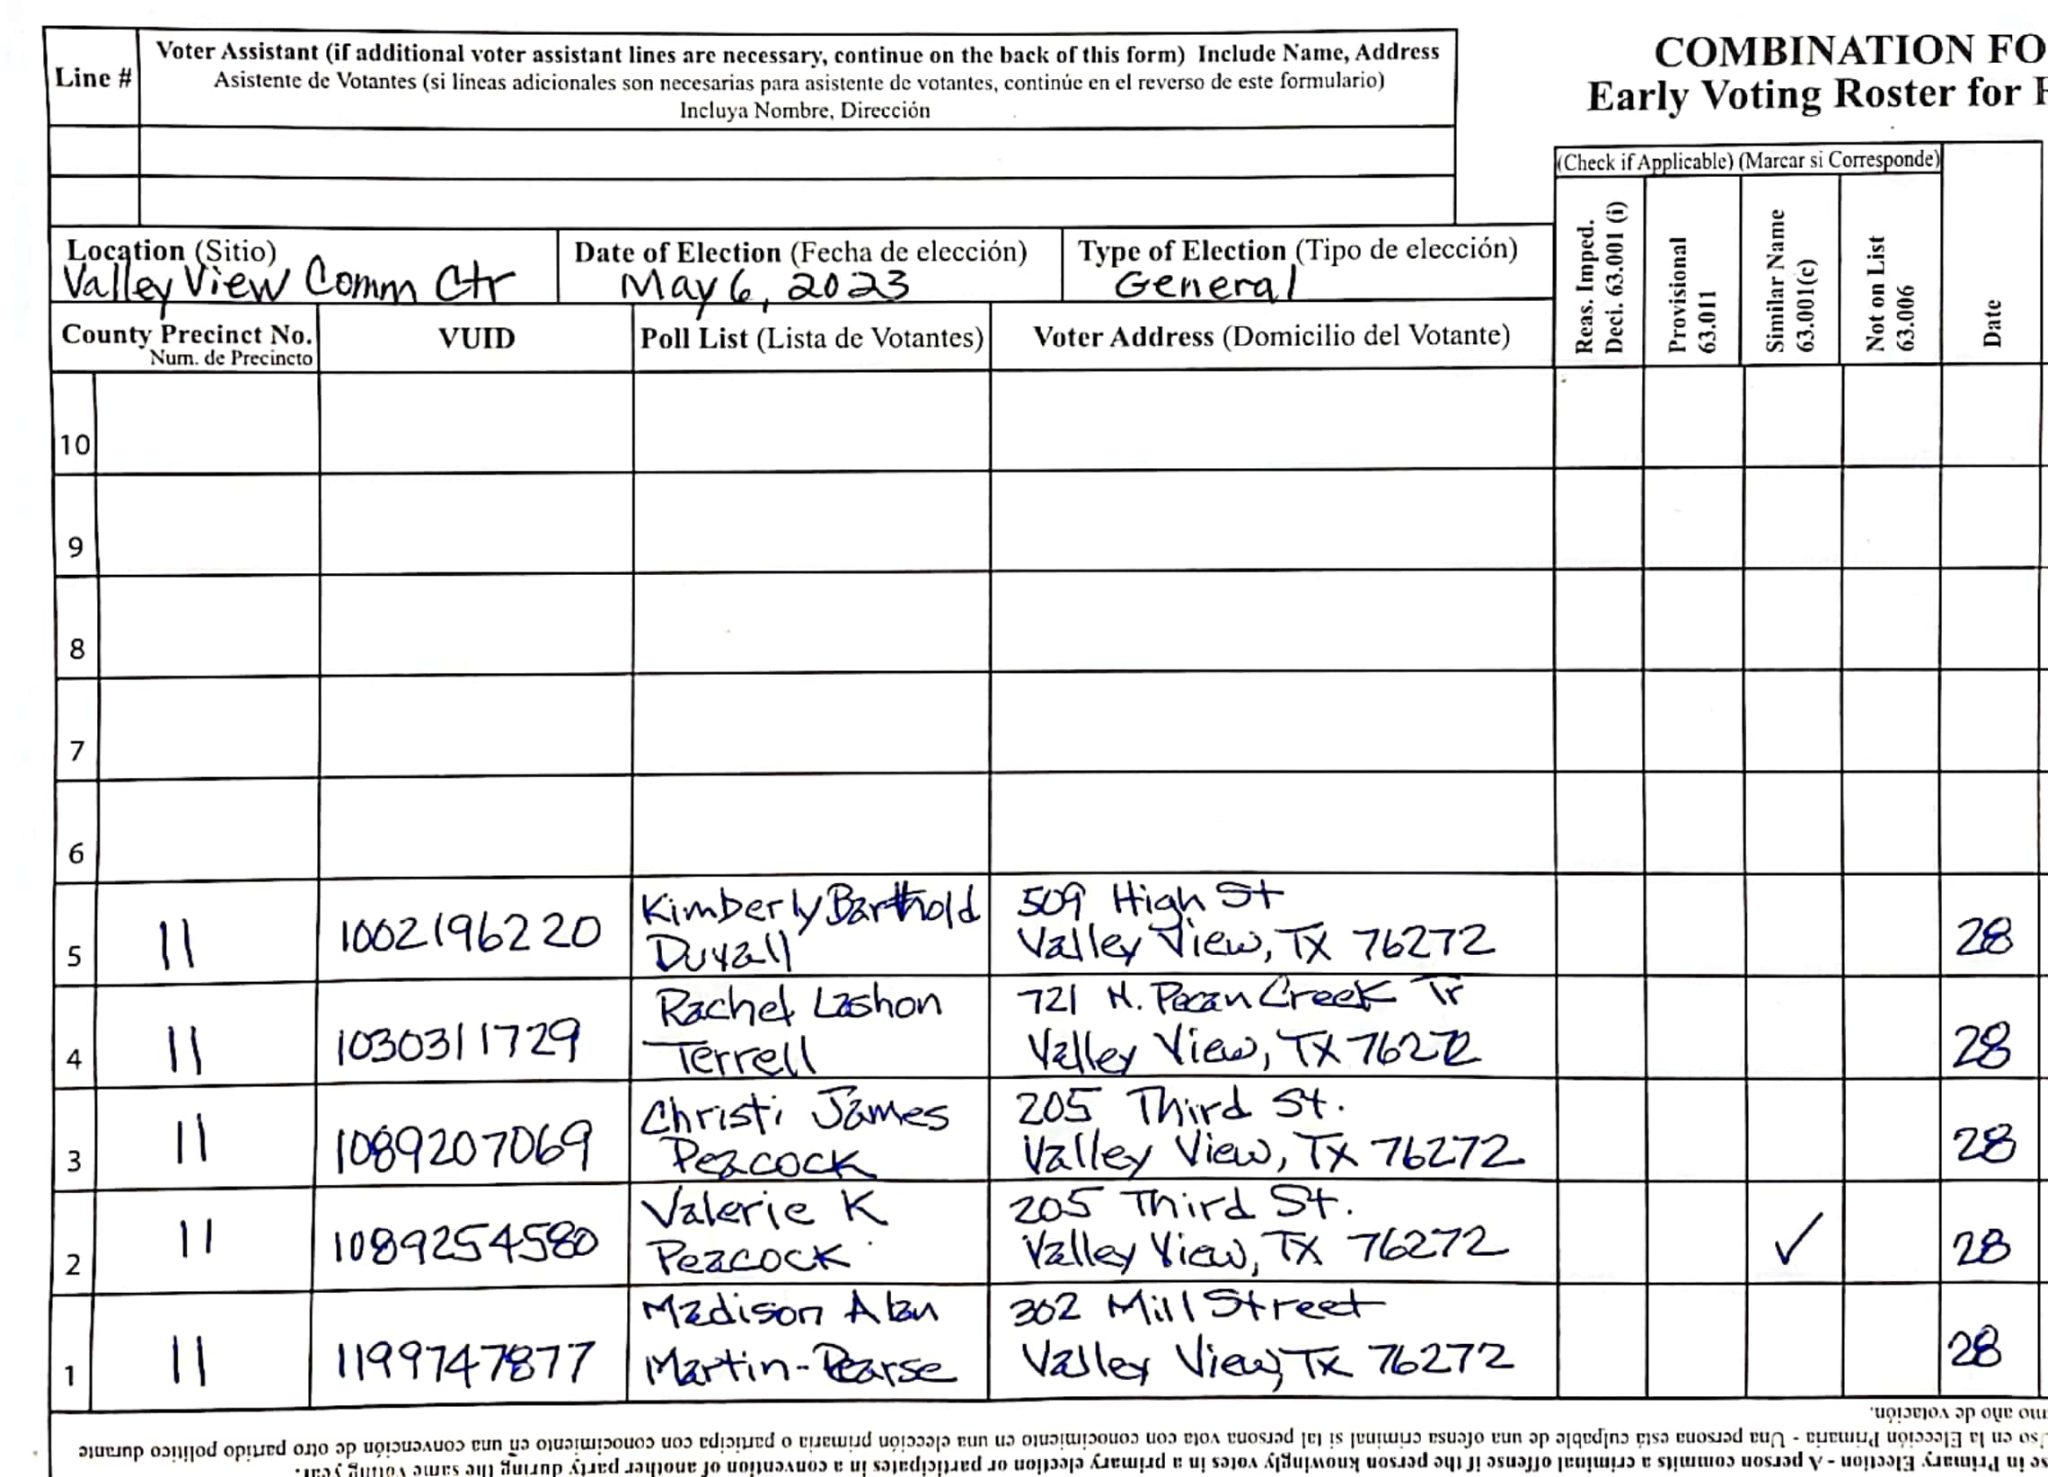 Line #
Voter Assistant (if additional voter assistant lines are necessary, continue on the back of this form) Include Name, Address
Asistente de Votantes (si lineas adicionales son necesarias para asistente de votantes, continúe en el reverso de este formulario)
Incluya Nombre, Dirección
COMBINATION FO
Early Voting Roster for
(Check if Applicable) (Marcar si Corresponde)
Reas. Imped.
Deci. 63.001 (i)
Provisional
63.011
Similar Name
63.001(c)
Not on List
63.006
Date
Location (Sitio)
Valley View Comm Ctr
Date of Election (Fecha de elección)
May 6, 2023
Type of Election (Tipo de elección)
General
County Precinct No.
Num. de Precincto
VUID
Poll List (Lista de Votantes)
Voter Address (Domicilio del Votante)
10
9
8
7
6
5 11 1002196220 Kimberly Barthold 509 High St 28
Duvall Valley View, TX 76272
4 11 1030311729 Rachel Lashon 721 N. Pecan Creek Tr 28
Terrell Valley View, TX 76272
3 11 1089207069 Christi James 205 Third St. 28
Peacock Valley View, TX 76272
2 11 1089254580 Valerie K 205 Third St. ✓ 28
Peacock Valley View, TX 76272
1 11 1199747877 Madison Alan 302 Mill Street 28
Martin-Pearse Valley View, TX 76272
mo año de votación.
uso en la Elección Primaria - Una persona está culpable de una ofensa criminal si tal persona vota con conocimiento en una elección primaria o participa con conocimiento en una convención de otro partido político durante
se in Primary Election - A person commits a criminal offense if the person knowingly votes in a primary election or participates in a convention of another party during the same voting year.